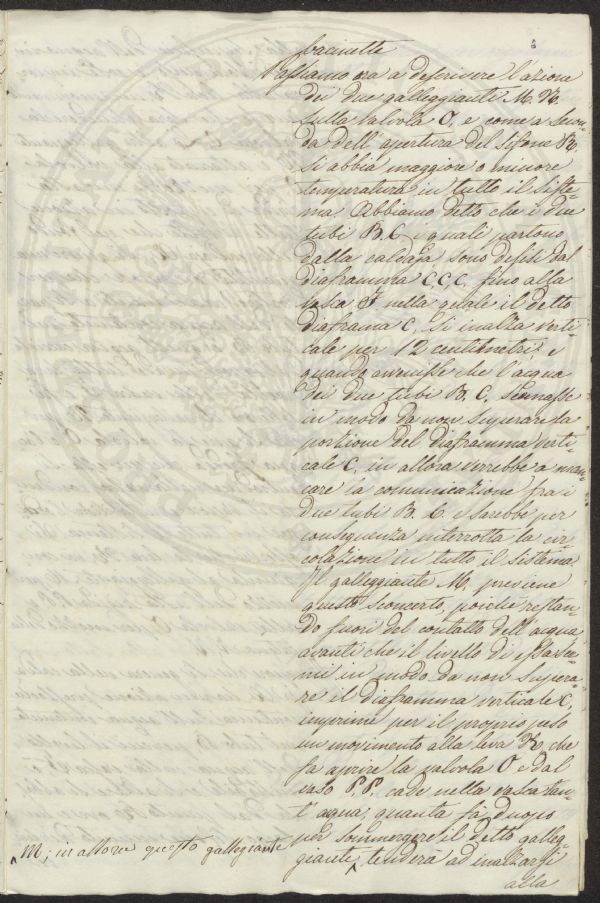 bacinette
Passiamo ora a descrivere l'azione
dei due galleggiante M. N.
sulla valvola O, e come a secon-
da dell'apertura del sifone R.
si abbia maggiore o minore
temperatura in tutto il siste-
ma. Abbiamo detto che i due
tubi B. C. i quali partono
dalla caldaja sono divisi dal
diaframma C.C.C. fino alla
vasca F nella quale il detto
diaframa C. si inalza verti-
cale per 12 centimetri e
quando avvenisse che l'acqua
dei due tubi B. C. scemasse
in modo da non superare la
porzione del diaframma verti-
cale C. in allora verrebbe a man-
care la comunicazione fra i
due tubi B. C. e sarebbe per
conseguenza interrotta la cir-
colazione in tutto il sistema.
Il galleggiante M. previene
questo sconcerto, poichè restan-
do fuori del contatto dell'acqua
avanti che il livello di essa sce-
mi in modo da non supera-
re il diaframma verticale C,
imprime per il proprio peso
un movimento alla leva K, che
fa aprire la valvola O e dal
vaso P.P. cade nella vasca tan-
t'acqua, quanta fà duopo
per sommergere il detto galleg-
M; in allora questo gallegiante
giante, tenderà ad inalzarsi
alla